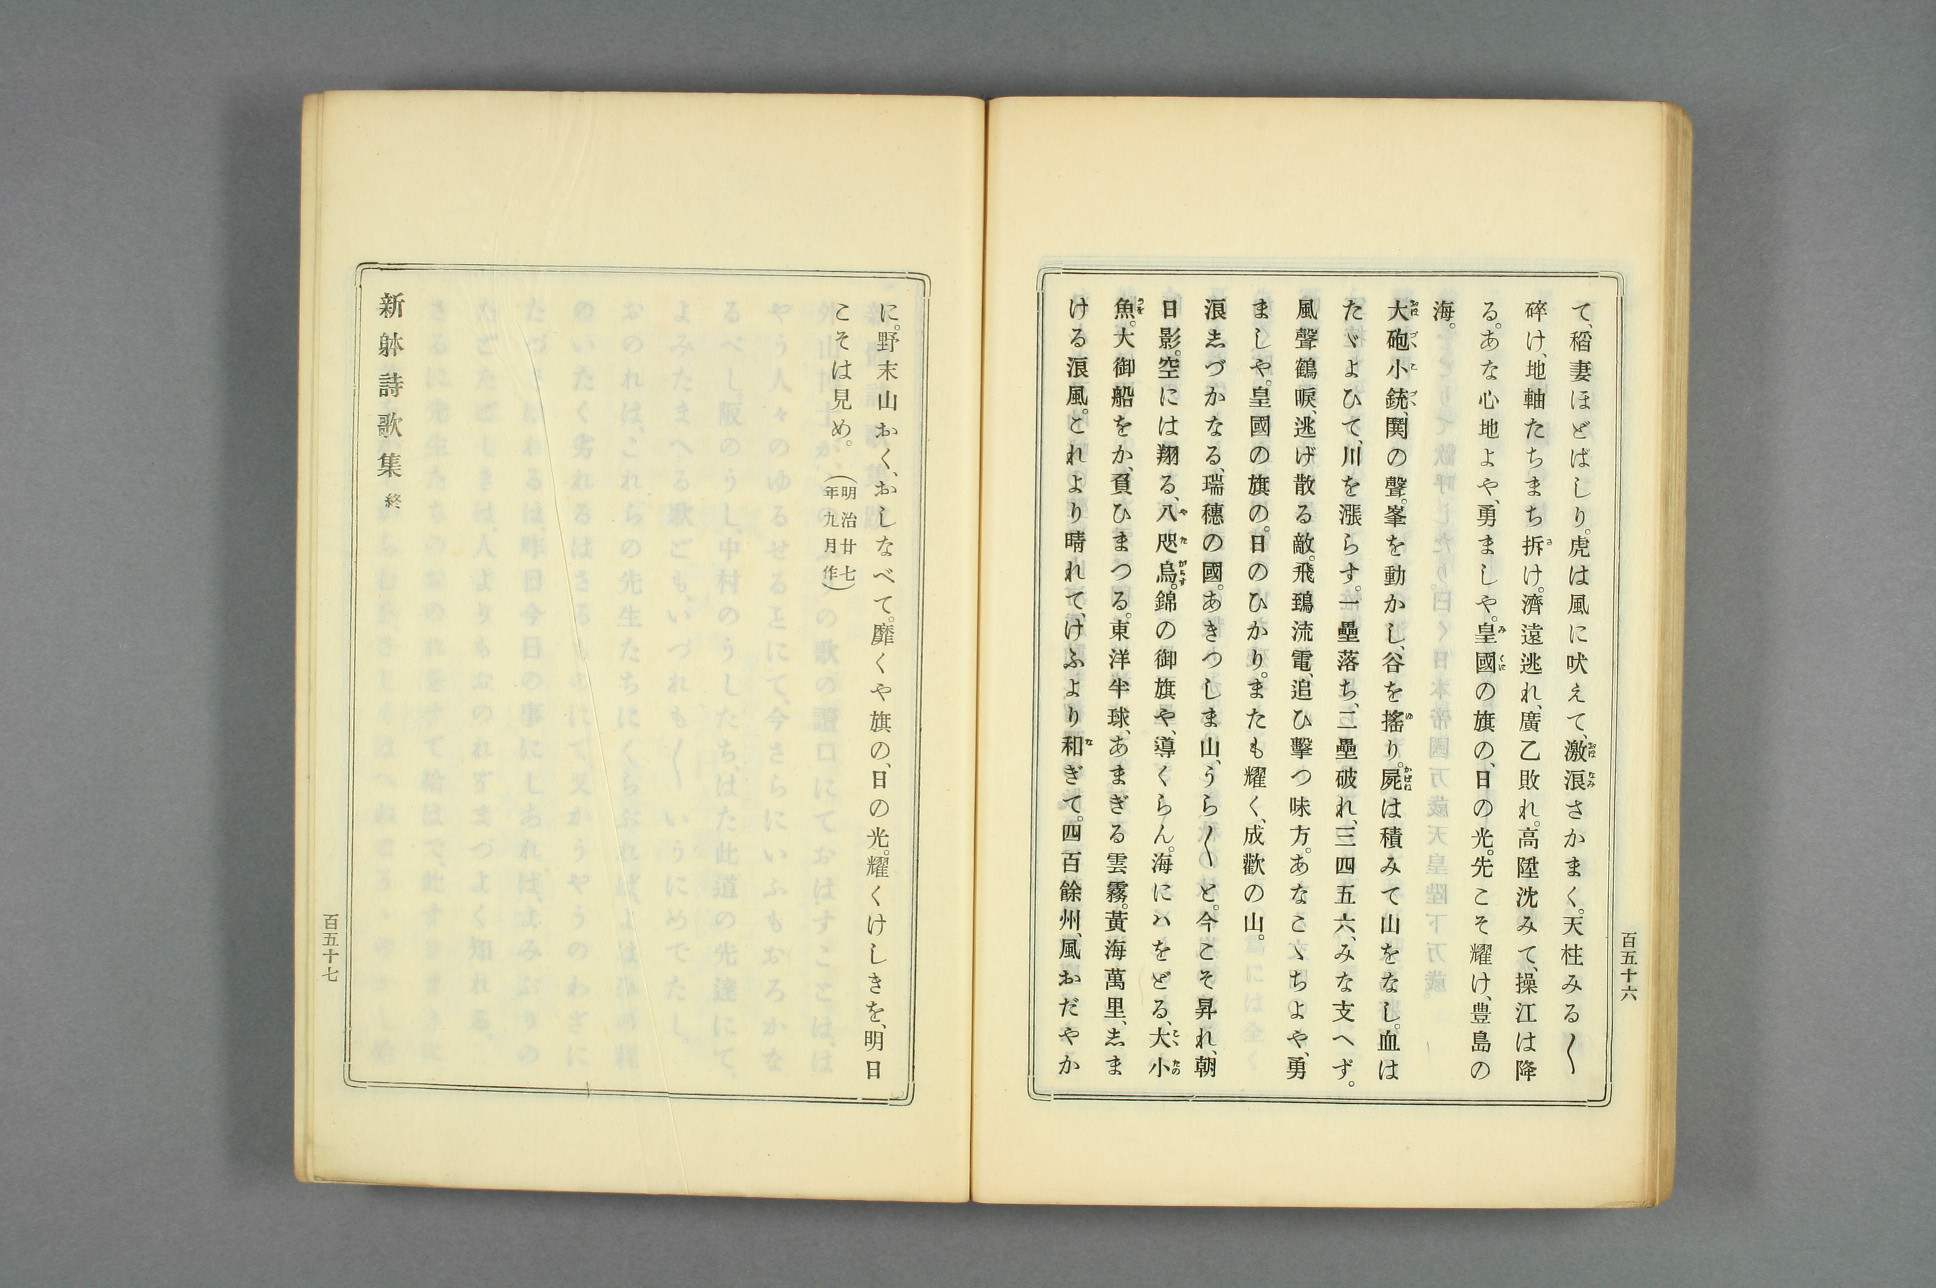 て、稻妻ほどばしり。虎は風に吠えて、激浪さかまく。天柱みる〳〵
碎け、地軸たちまち拆け。濟遠逃れ、廣乙敗れ。高陞沈みて、操江は降
る。あな心地よや、勇ましや。皇國の旗の、日の光。先こそ耀け、豊島の
海。
大砲小銃、鬨の聲。峯を動かし、谷を搖り。屍は積みて山をなし。血は
たゞよひて、川を漲らす。一壘落ち、二壘破れ、三四五六、みな支へず。
風聲鶴唳、逃げ散る敵。飛鵄流電、追ひ擊つ味方。あなこゝちよや、勇
ましや。皇國の旗の。日のひかり。またも耀く、成歡の山。
浪志づかなる、瑞穗の國。あきつしま山、うら〳〵と。今こそ昇れ、朝
日影。空には翔る、八咫烏。錦の御旗や、導くらん。海にハをどる、大小
魚。大御船をか、負ひまつる。東洋半球、あまぎる雲霧。黃海萬里、志ま
ける浪風。これより晴れて、けふより和ぎて。四百餘州、風おだやか
百五十六
に。野末山おく、おしなべて。靡くや旗の、日の光。耀くけしきを、明日
こそは見め。(明治廿七年九月作)
新躰詩歌集 終
百五十七